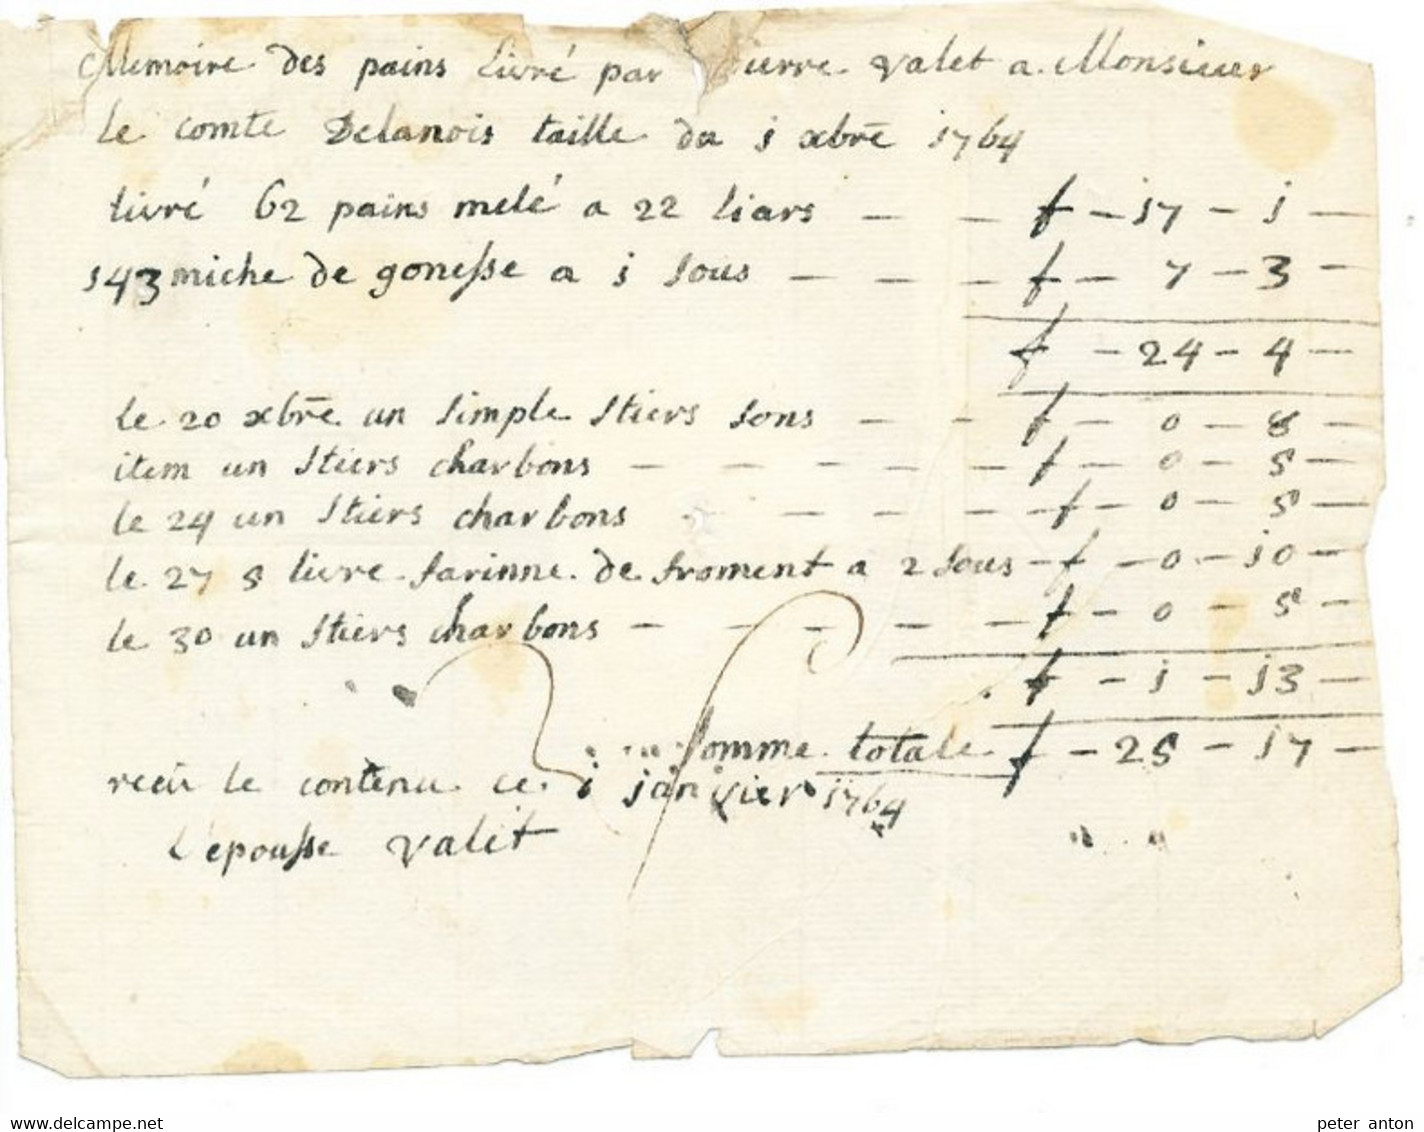 Memoire des pains livré par pierre valet a Monsieur
le comte Delanois taille du j xbre j764
livré 62 pains melé a 22 liars — — f — j7 — j —
j43 miche de gonesse a j sous — — — f — 7 — 3 —
f — 24 — 4 —
le 20 xbre un simple stiers sons — — f — 0 — 8 —
item un stiers charbons — — — — — f — 0 — 5 —
le 24 un stiers charbons — — — — f — 0 — 5 —
le 27 5 livre farinne de froment a 2 sous — f — 0 — j0 —
le 30 un stiers charbons — — — — — f — 0 — 5 —
f — j — j3 —
somme totale f — 25 — j7 —
receu le contenu ce j janvier j764
l'epousse valet
www.delcampe.net
peter anton